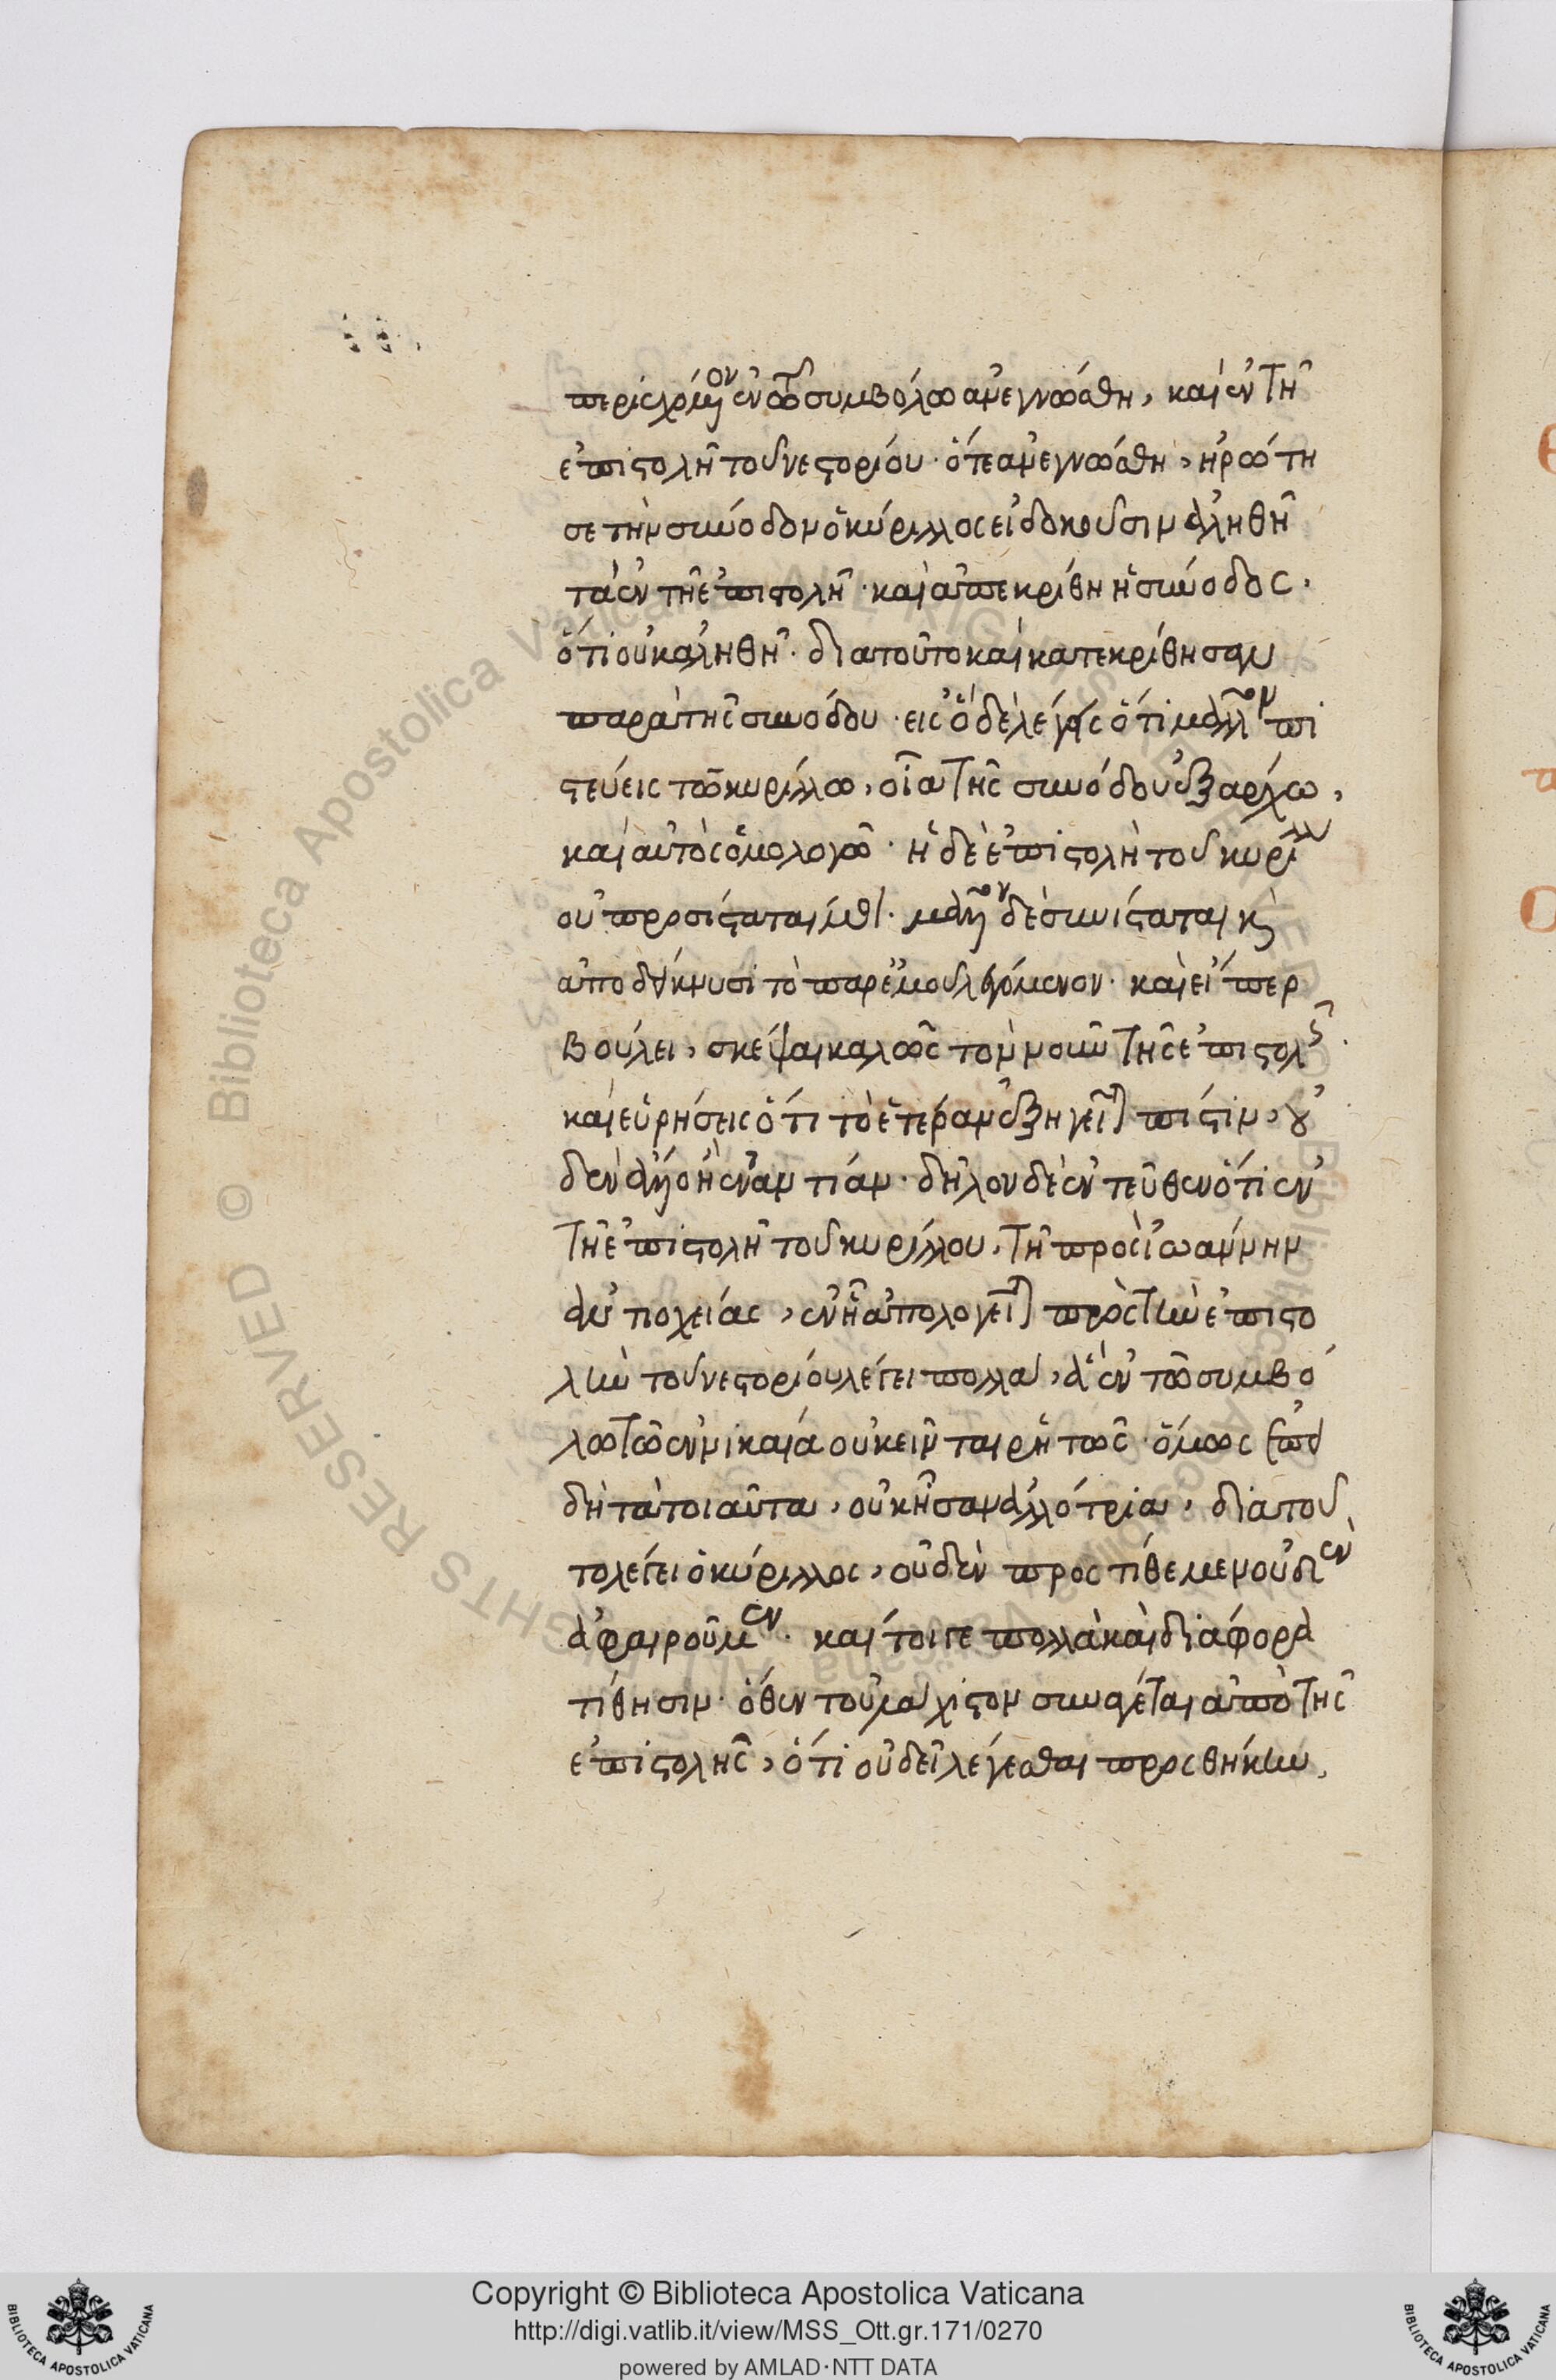 περιεχόμενον ἐν τῶ συμβόλω ἀνεγνώσθη, καὶ ἐν τῆ
ἐπιστολῆ τοῦ νεστορίου· ὅτε ἀνεγνώσθη, ἠρώτη
σε τὴν σύνοδον ὁ κύριλλος εἰ δοκοῦσιν ἀληθῆ
τὰ ἐν τῆ ἐπιστολῆ· καὶ ἀπεκρίθη ἡ σύνοδος.
ὅτι οὐκ ἀληθῆ· διατοῦτο καὶ κατεκρίθησαν
παρὰ τῆς συνόδου· εἰς ὃ δὲ λέγεις ὅτι μᾶλλον πι
στεύεις τῶ κυρίλλω, οἷα τῆς συνόδου ἐξαρχω,
καὶ αὐτὸς ὁμολογῶ· ἡ δὲ ἐπιστολὴ τοῦ κυρίλλ
ου προσίσταταί μοι· μᾶλλον δὲ συνίσταται καὶ
ἀποδείκνυσι τὸ παρ' ἐμοῦ λεγόμενον· καὶ εἴπερ
βούλει, σκέψαι καλῶς τὸν νοῦν τῆς ἐπιστολῆς·
καὶ εὑρήσεις ὅτι τὸ ἑτέραν ἐξηγεῖται πίστιν, οὐ
δὲν ἄλλο ἢ ἐναντίαν· δῆλον δὲ ἐντεῦθεν ὅτι ἐν
τῆ ἐπιστολῆ τοῦ κυρίλλου, τῆ πρὸς ἰωάννην
ἀντιοχείας, ἐν ἧ ἀπολογεῖται πρὸς τὴν ἐπιστο
λὴν τοῦ νεστορίου λέγει πολλὰ, ἃ ἐν τῶ συμβό
λω τῶ ἐν νικαία οὐ κεῖνται ῥητῶς· ὅμως ἐπεὶ
δὴ τὰ τοιαῦτα, οὐκ ἦσαν ἀλλότρια, διὰ τοῦ
το λέγει ὁ κύριλλος, οὐδὲν προστίθεμεν οὐδὲν
ἀφαιροῦμεν· καίτοιγε πολλὰ καὶ διάφορα
τίθησιν· ὅθεν τοὐλάχιστον συνάγεται ἀπὸ τῆς
ἐπιστολῆς, ὅτι οὐ δεῖ λέγεσθαι προσθήκην,
Copyright © Biblioteca Apostolica Vaticana
http://digi.vatlib.it/view/MSS_Ott.gr.171/0270
powered by AMLAD·NTT DATA